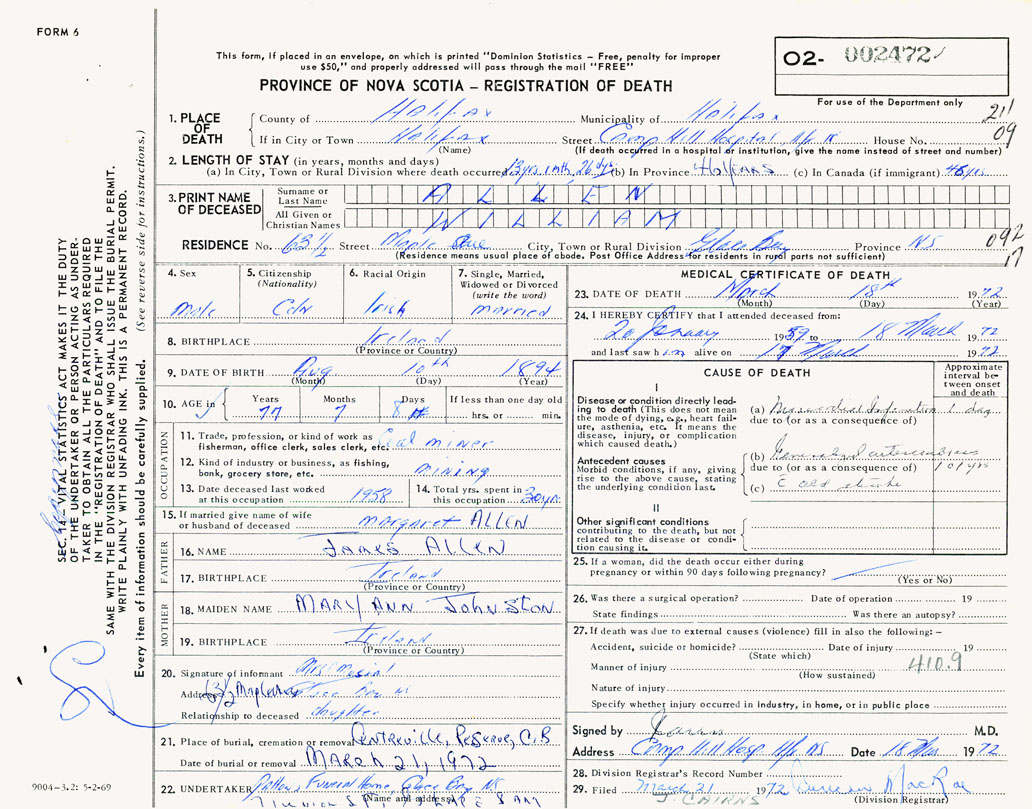 FORM 6
This form, if placed in an envelope, on which is printed "Dominion Statistics – Free, penalty for improper
use $50," and properly addressed will pass through the mail "FREE"
PROVINCE OF NOVA SCOTIA – REGISTRATION OF DEATH
O2- 002472
For use of the Department only
211
09
1. PLACE OF DEATH
County of Halifax Municipality of Halifax
If in City or Town Halifax Street Camp Hill Hospital, Hfx NS House No.
(Name) (If death occurred in a hospital or institution, give the name instead of street and number)
2. LENGTH OF STAY (in years, months and days)
(a) In City, Town or Rural Division where death occurred 13 yrs 1 mth, 26 dys (b) In Province 46 YEARS (c) In Canada (if immigrant) 46 yrs
3. PRINT NAME OF DECEASED
Surname or Last Name ALLEN
All Given or Christian Names WILLIAM
RESIDENCE No. 63½ Street Maple Ave City, Town or Rural Division Glace Bay Province NS
(Residence means usual place of abode. Post Office Address for residents in rural parts not sufficient)
092
17
4. Sex
Male
5. Citizenship
(Nationality)
Cdn
6. Racial Origin
Irish
7. Single, Married,
Widowed or Divorced
(write the word)
married
8. BIRTHPLACE Ireland
(Province or Country)
9. DATE OF BIRTH Aug 10th 1894
(Month) (Day) (Year)
10. AGE
Years 77
Months 7
Days 8
If less than one day old
hrs. or min.
OCCUPATION
11. Trade, profession, or kind of work as
fisherman, office clerk, sales clerk, etc. Coal miner
12. Kind of industry or business, as fishing,
bank, grocery store, etc. mining
13. Date deceased last worked
at this occupation 1958
14. Total yrs. spent in
this occupation 30 yrs
15. If married give name of wife
or husband of deceased margaret ALLEN
FATHER
16. NAME JAMES ALLEN
17. BIRTHPLACE Ireland
(Province or Country)
MOTHER
18. MAIDEN NAME MARY ANN JOHNSTON
19. BIRTHPLACE Ireland
(Province or Country)
20. Signature of informant Mrs
Address 63½ Maple Ave Glace Bay NS
Relationship to deceased daughter
21. Place of burial, cremation or removal Centreville, Reserve, C.B
Date of burial or removal MARCH 21, 1972
22. UNDERTAKER Funeral Home, Glace Bay, N.S.
(Name and address)
MEDICAL CERTIFICATE OF DEATH
23. DATE OF DEATH March 18th 1972
(Month) (Day) (Year)
24. I HEREBY CERTIFY that I attended deceased from:
20 January 1959 to 18 March 1972
and last saw him alive on 17 March 1972
CAUSE OF DEATH
Approximate
interval be-
tween onset
and death
I
Disease or condition directly lead-
ing to death (This does not mean
the mode of dying, e.g., heart fail-
ure, asthenia, etc. It means the
disease, injury, or complication
which caused death.)
(a) Myocardial Infarction 1 day
due to (or as a consequence of)
Antecedent causes
Morbid conditions, if any, giving
rise to the above cause, stating
the underlying condition last.
(b) Generalized arteriosclerosis
due to (or as a consequence of) 10 yrs
(c) c old stroke
II
Other significant conditions
contributing to the death, but not
related to the disease or condi-
tion causing it.
25. If a woman, did the death occur either during
pregnancy or within 90 days following pregnancy?
(Yes or No)
26. Was there a surgical operation? Date of operation 19
State findings Was there an autopsy?
27. If death was due to external causes (violence) fill in also the following: –
Accident, suicide or homicide? Date of injury 19
(State which)
Manner of injury 410.9
(How sustained)
Nature of injury
Specify whether injury occurred in industry, in home, or in public place
Signed by Cairns M.D.
Address Camp Hill Hosp Hfx NS Date 18 Mar 1972
28. Division Registrar's Record Number
29. Filed March 21 1972 Duncan MacRae
(Division Registrar)
J CAIRNS
SEC. 14 – VITAL STATISTICS ACT MAKES IT THE DUTY
OF THE UNDERTAKER OR PERSON ACTING AS UNDER-
TAKER TO OBTAIN ALL THE PARTICULARS REQUIRED
IN THE "REGISTRATION OF DEATH" AND TO FILE THE
SAME WITH THE DIVISION REGISTRAR WHO SHALL ISSUE THE BURIAL PERMIT.
WRITE PLAINLY WITH UNFADING INK. THIS IS A PERMANENT RECORD.
Every item of information should be carefully supplied. (See reverse side for instructions.)
9004–3.2: 5-2-69